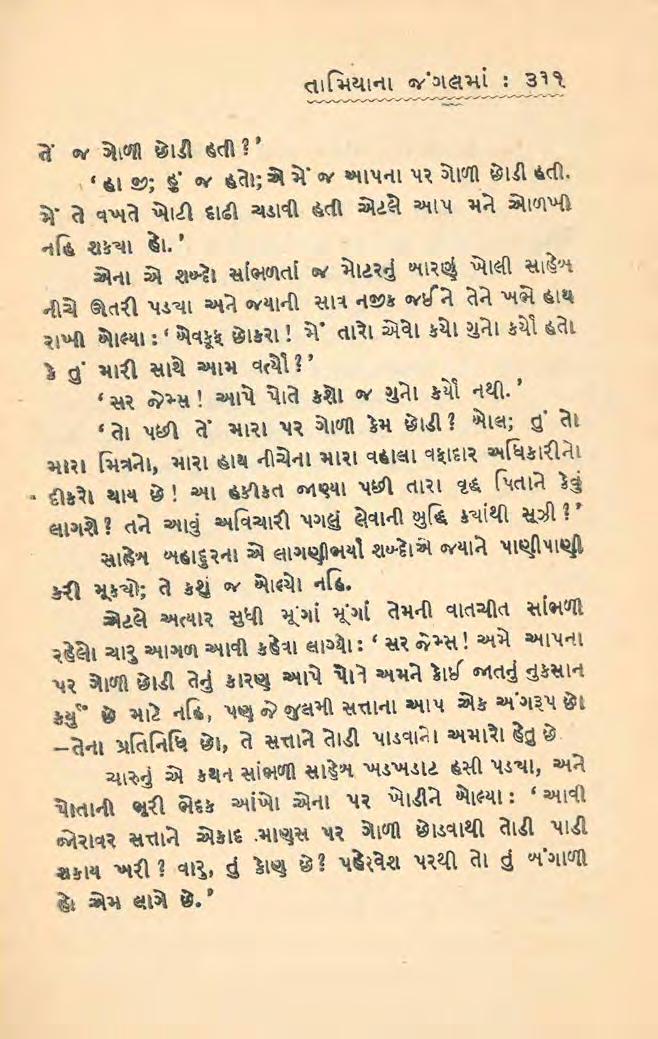 તામિયાના જંગલમાં : ૩૧૧
તેં જ ગોળી છોડી હતી ?’
‘ હા જી; હું જ હતો; એ મેં જ આપના પર ગોળી છોડી હતી.
મેં તે વખતે ખોટી દાઢી ચડાવી હતી એટલે આપ મને ઓળખી
નહિ શક્યા હો.’
એના એ શબ્દો સાંભળતાં જ મોટરનું બારણું ખોલી સાહેબ
નીચે ઊતરી પડ્યા અને જયાની સાવ નજીક જઈને તેને ખભે હાથ
રાખી બોલ્યા : ‘ બેવકૂફ છોકરા ! મેં તારો એવો કયો ગુનો કર્યો હતો
કે તું મારી સાથે આમ વર્ત્યો ?’
‘ સર જેમ્સ ! આપે પોતે કશો જ ગુનો કર્યો નથી.’
‘ તો પછી તેં મારા પર ગોળી કેમ છોડી ? બોલ; તું તો
મારા મિત્રનો, મારા હાથ નીચેના મારા વહાલા વફાદાર અધિકારીનો
દીકરો થાય છે ! આ હકીકત જાણ્યા પછી તારા વૃદ્ધ પિતાને કેવું
લાગશે ? તને આવું અવિચારી પગલું લેવાની બુદ્ધિ ક્યાંથી સૂઝી ?’
સાહેબ બહાદુરના એ લાગણીભર્યા શબ્દોએ જયાને પાણીપાણી
કરી મૂક્યો; તે કશું જ બોલ્યો નહિ.
એટલે અત્યાર સુધી મૂંગાં મૂંગાં તેમની વાતચીત સાંભળી
રહેલો ચારુ આગળ આવી કહેવા લાગ્યો : ‘ સર જેમ્સ ! અમે આપના
પર ગોળી છોડી તેનું કારણ આપે પોતે અમને કોઈ જાતનું નુકસાન
કર્યું છે માટે નહિ, પણ જે જુલમી સત્તાના આપ એક અંગરૂપ છો
—તેના પ્રતિનિધિ છો, તે સત્તાને તોડી પાડવાનો અમારો હેતુ છે.
ચારુનું એ કથન સાંભળી સાહેબ ખડખડાટ હસી પડ્યા, અને
પોતાની ભૂરી ભેદક આંખો એના પર ખોડીને બોલ્યા : ‘ આવી
જોરાવર સત્તાને એકાદ માણસ પર ગોળી છોડવાથી તોડી પાડી
શકાય ખરી ? વારુ, તું કોણ છે ? પહેરવેશ પરથી તો તું બંગાળી
હો એમ લાગે છે.’